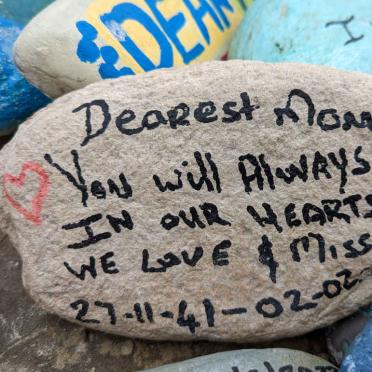 DEAR
I
Dearest Mom
You will Always
In our Hearts
We Love & Miss
27-11-41-02-02-